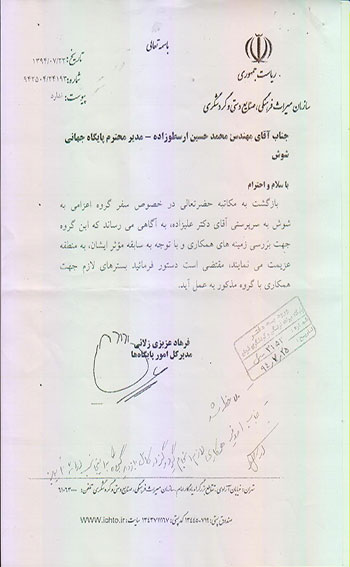 باسمه تعالی
ریاست جمهوری
سازمان میراث فرهنگی، صنایع دستی و گردشگری
تاریخ: ۱۳۹۴/۰۷/۲۲
شماره: ۹۴۲۵۰۴/۲۴۱۹۲
پیوست: ندارد
جناب آقای مهندس محمد حسین ارسطوزاده – مدیر محترم پایگاه جهانی
شوش
با سلام و احترام
بازگشت به مکاتبه حضرتعالی در خصوص سفر گروه اعزامی به
شوش به سرپرستی آقای دکتر علیزاده، به آگاهی می رساند که این گروه
جهت بررسی زمینه های همکاری و با توجه به سابقه مؤثر ایشان، به منطقه
عزیمت می نمایند، مقتضی است دستور فرمائید بسترهای لازم جهت
همکاری با گروه مذکور به عمل آید.
فرهاد عزیزی زلانی
مدیرکل امور پایگاه‌ها
ملاحظه شد
تهران: خیابان آزادی، تقاطع بزرگراه یادگار امام، سازمان میراث فرهنگی، صنایع دستی و گردشگری تلفن:
صندوق پستی: ۱۳۴۴۵-۷۱۹ کدپستی: سایت: www.ichto.ir